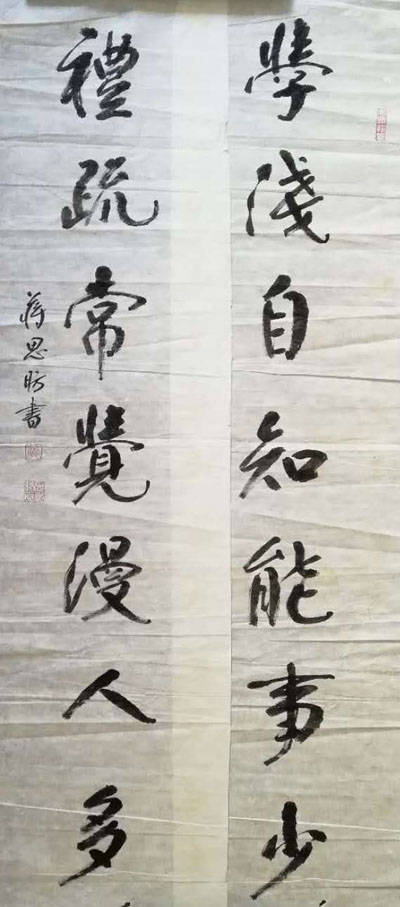 學淺自知能事少
禮疏常覺漫人多
蔣思昉書